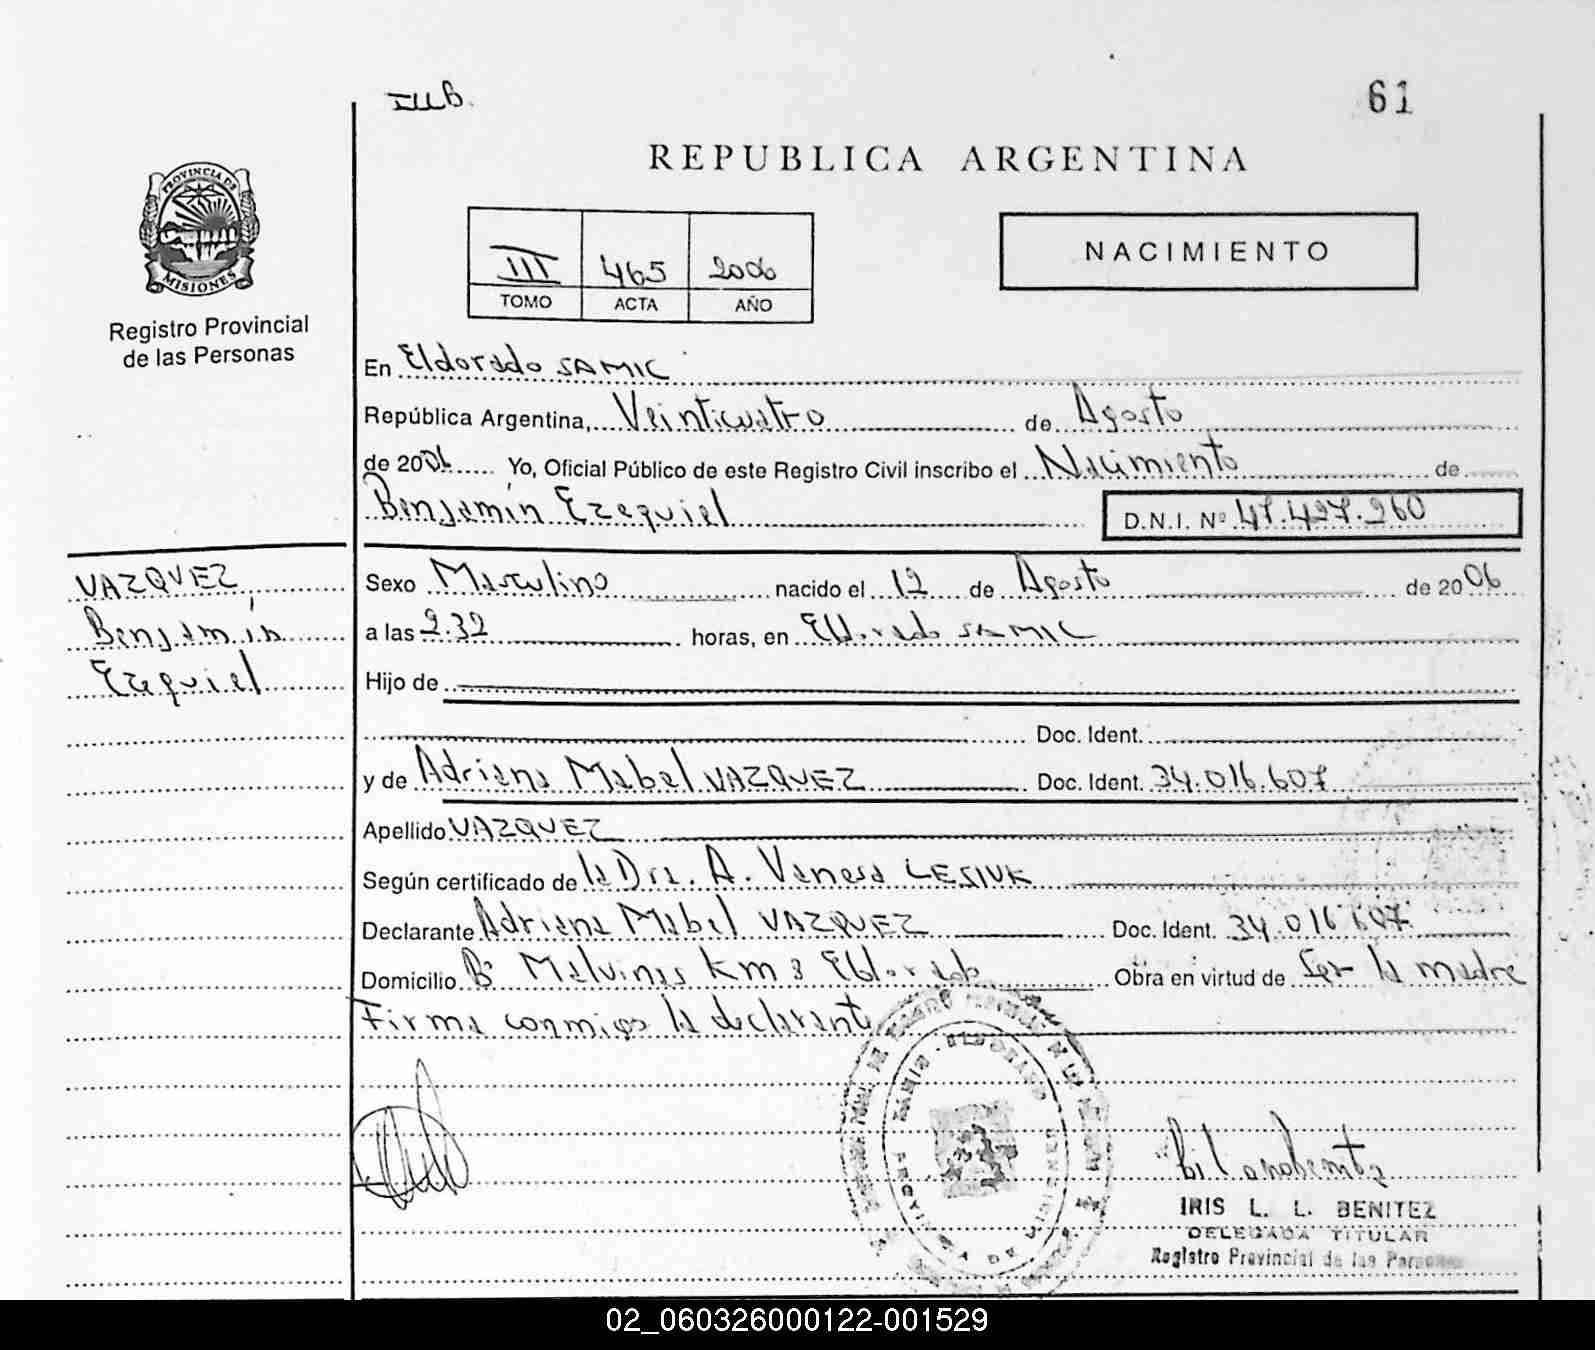 61
REPUBLICA ARGENTINA
PROVINCIA DE
MISIONES
Registro Provincial
de las Personas
III 465 2006
TOMO ACTA AÑO
NACIMIENTO
En Eldorado SAMIC
República Argentina, Veinticuatro de Agosto
de 2006 Yo, Oficial Público de este Registro Civil inscribo el Nacimiento de
Benjamín Ezequiel D.N.I. Nº 47.427.260
VAZQUEZ
Benjamín
Ezequiel
Sexo Masculino nacido el 12 de Agosto de 2006
a las 2.32 horas, en Eldorado SAMIC
Hijo de
Doc. Ident.
y de Adriana Mabel VAZQUEZ Doc. Ident. 34.016.607
Apellido VAZQUEZ
Según certificado de la Dra. A. Vanesa LESIUK
Declarante Adriana Mabel VAZQUEZ Doc. Ident. 34.016.607
Domicilio Bº Malvinas Km 8 Eldorado Obra en virtud de Ser la madre
Firma conmigo la declarante
IRIS L. L. BENITEZ
DELEGADA TITULAR
Registro Provincial de las Personas
02_060326000122-001529